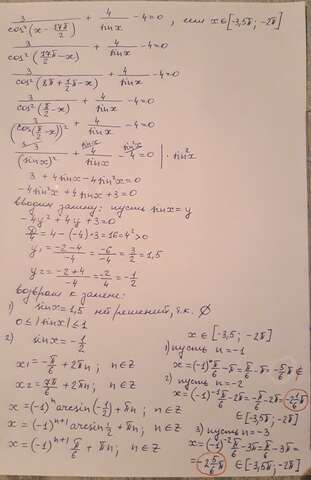 3/cos²(x − 17π/2) + 4/sinx − 4 = 0 , если x∈[-3,5π; -2π]
3/cos²(17π/2 − x) + 4/sinx − 4 = 0
3/cos²(8π + 1/2π − x) + 4/sinx − 4 = 0
3/cos²(π/2 − x) + 4/sinx − 4 = 0
3/(cos(π/2 − x))² + 4/sinx − 4 = 0
3/(sinx)² + 4/sinx − 4 = 0 | · sin²x
3 + 4sinx − 4sin²x = 0
−4sin²x + 4sinx + 3 = 0
вводим замену: пусть sinx = y
−4y² + 4y + 3 = 0
D/4 = 4 − (−4)·3 = 16 = 4² > 0
y₁ = (−2−4)/−4 = −6/−4 = 3/2 = 1,5
y₂ = (−2+4)/−4 = 2/−4 = −1/2
возврат к замене:
1) sinx = 1,5 нет решений, т.к. ∅
0 ≤ |sinx| ≤ 1
2) sinx = −1/2
x₁ = −π/6 + 2πn; n∈Z
x₂ = 7π/6 + 2πn; n∈Z
x = (−1)ⁿ arcsin(−1/2) + πn; n∈Z
x = (−1)ⁿ⁺¹ arcsin 1/2 + πn; n∈Z
x = (−1)ⁿ⁺¹ π/6 + πn; n∈Z
x∈[-3,5; -2π]
1) пусть n = −1
x = (−1)⁰ π/6 − π = π/6 − π = −5/6π ∉
2) пусть n = −2
x = (−1)⁻¹ π/6 − 2π = −π/6 − 2π = −2 1/6π
∈ [-3,5π; -2π]
3) пусть n = −3
x = (−1)⁻² π/6 − 3π = π/6 − 3π =
= −2 5/6π ∈ [-3,5π; -2π]